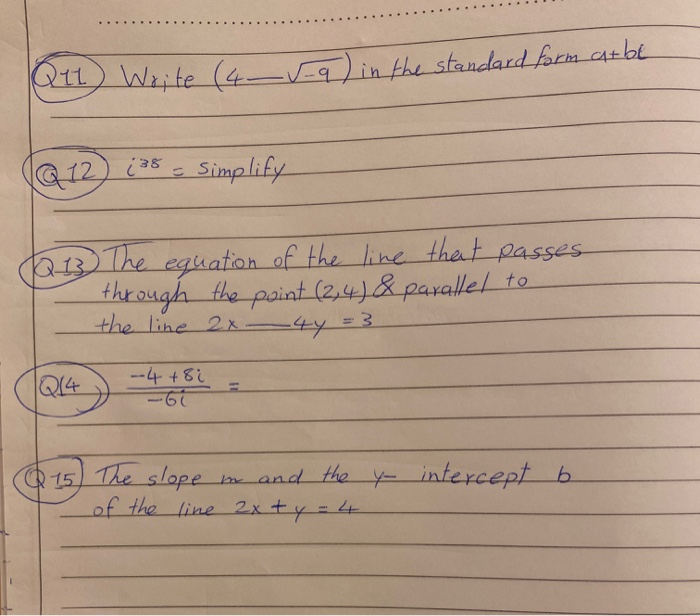 Q11 Write (4-√-9) in the standard form a+bi
Q12 i³⁸ = simplify
Q13 The equation of the line that passes
through the point (2,4) & parallel to
the line 2x - 4y = 3
Q14 (-4+8i)/(-6i) =
Q15 The slope m and the y- intercept b
of the line 2x + y = 4